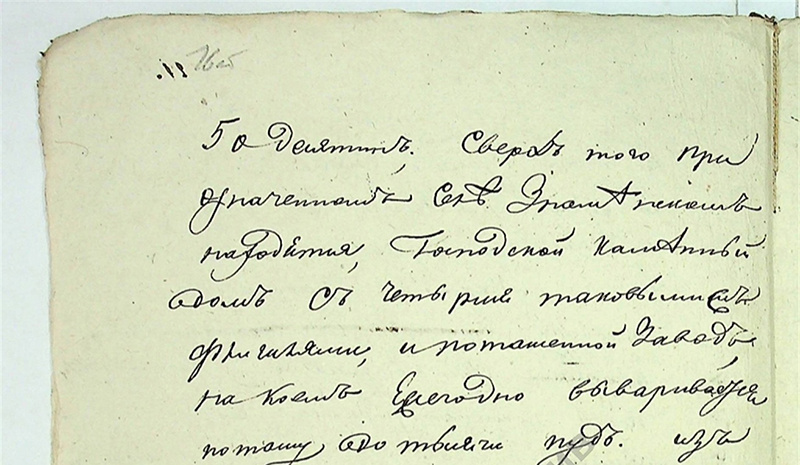 50 десятинъ. Сверхъ того при
означенномъ селѣ Знаменскомъ
находится, Господской каменный
домъ съ четырмя таковымижъ
флигилями, и поташенной Заводъ,
на коемъ Ежегодно вываривается
поташу до тысячи пудъ. изъ